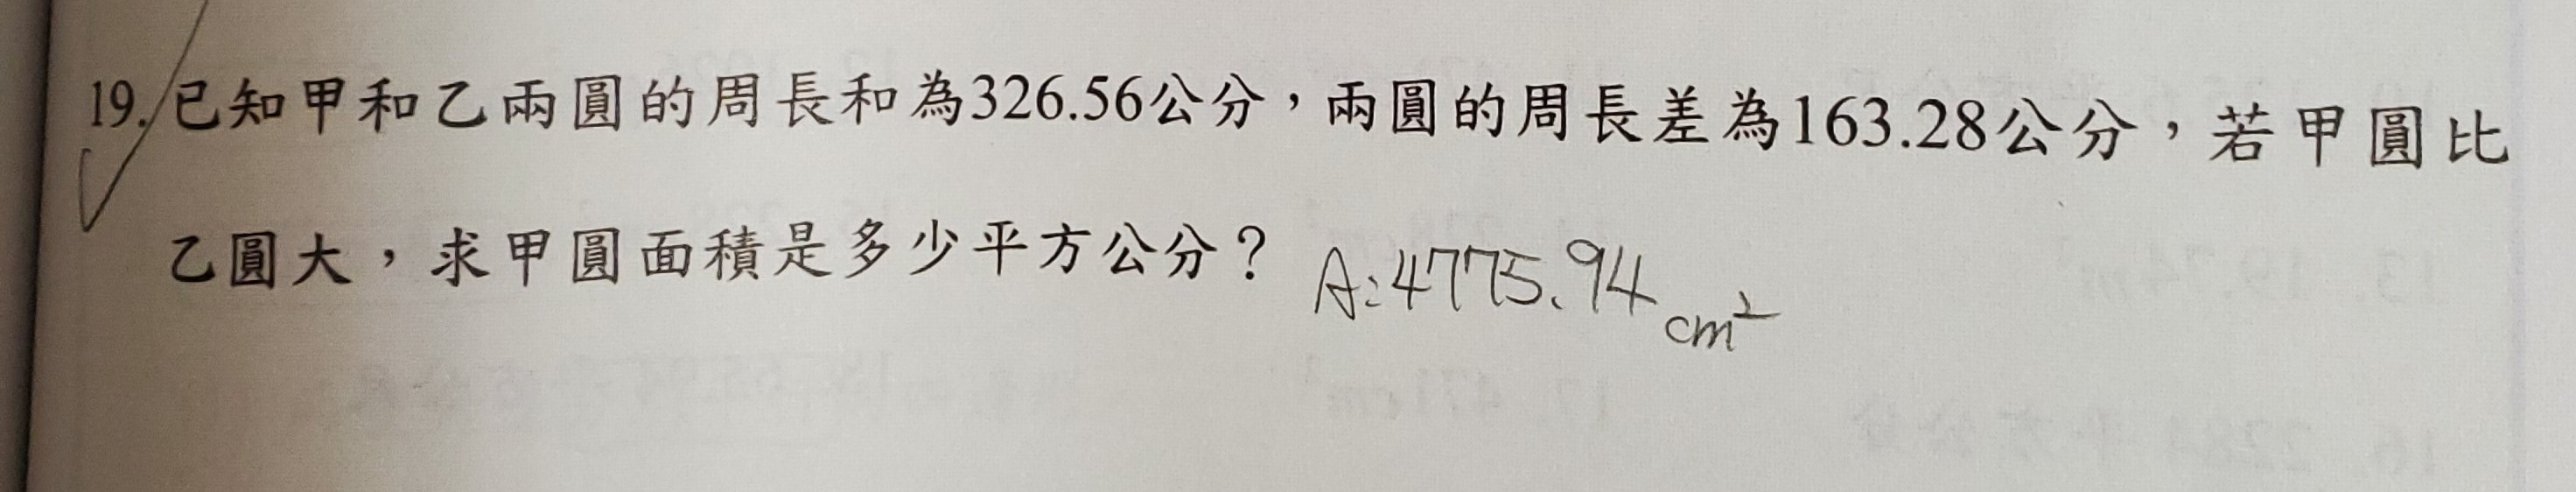 19. 已知甲和乙兩圓的周長和為326.56公分，兩圓的周長差為163.28公分，若甲圓比
乙圓大，求甲圓面積是多少平方公分？ A:4775.94 cm²